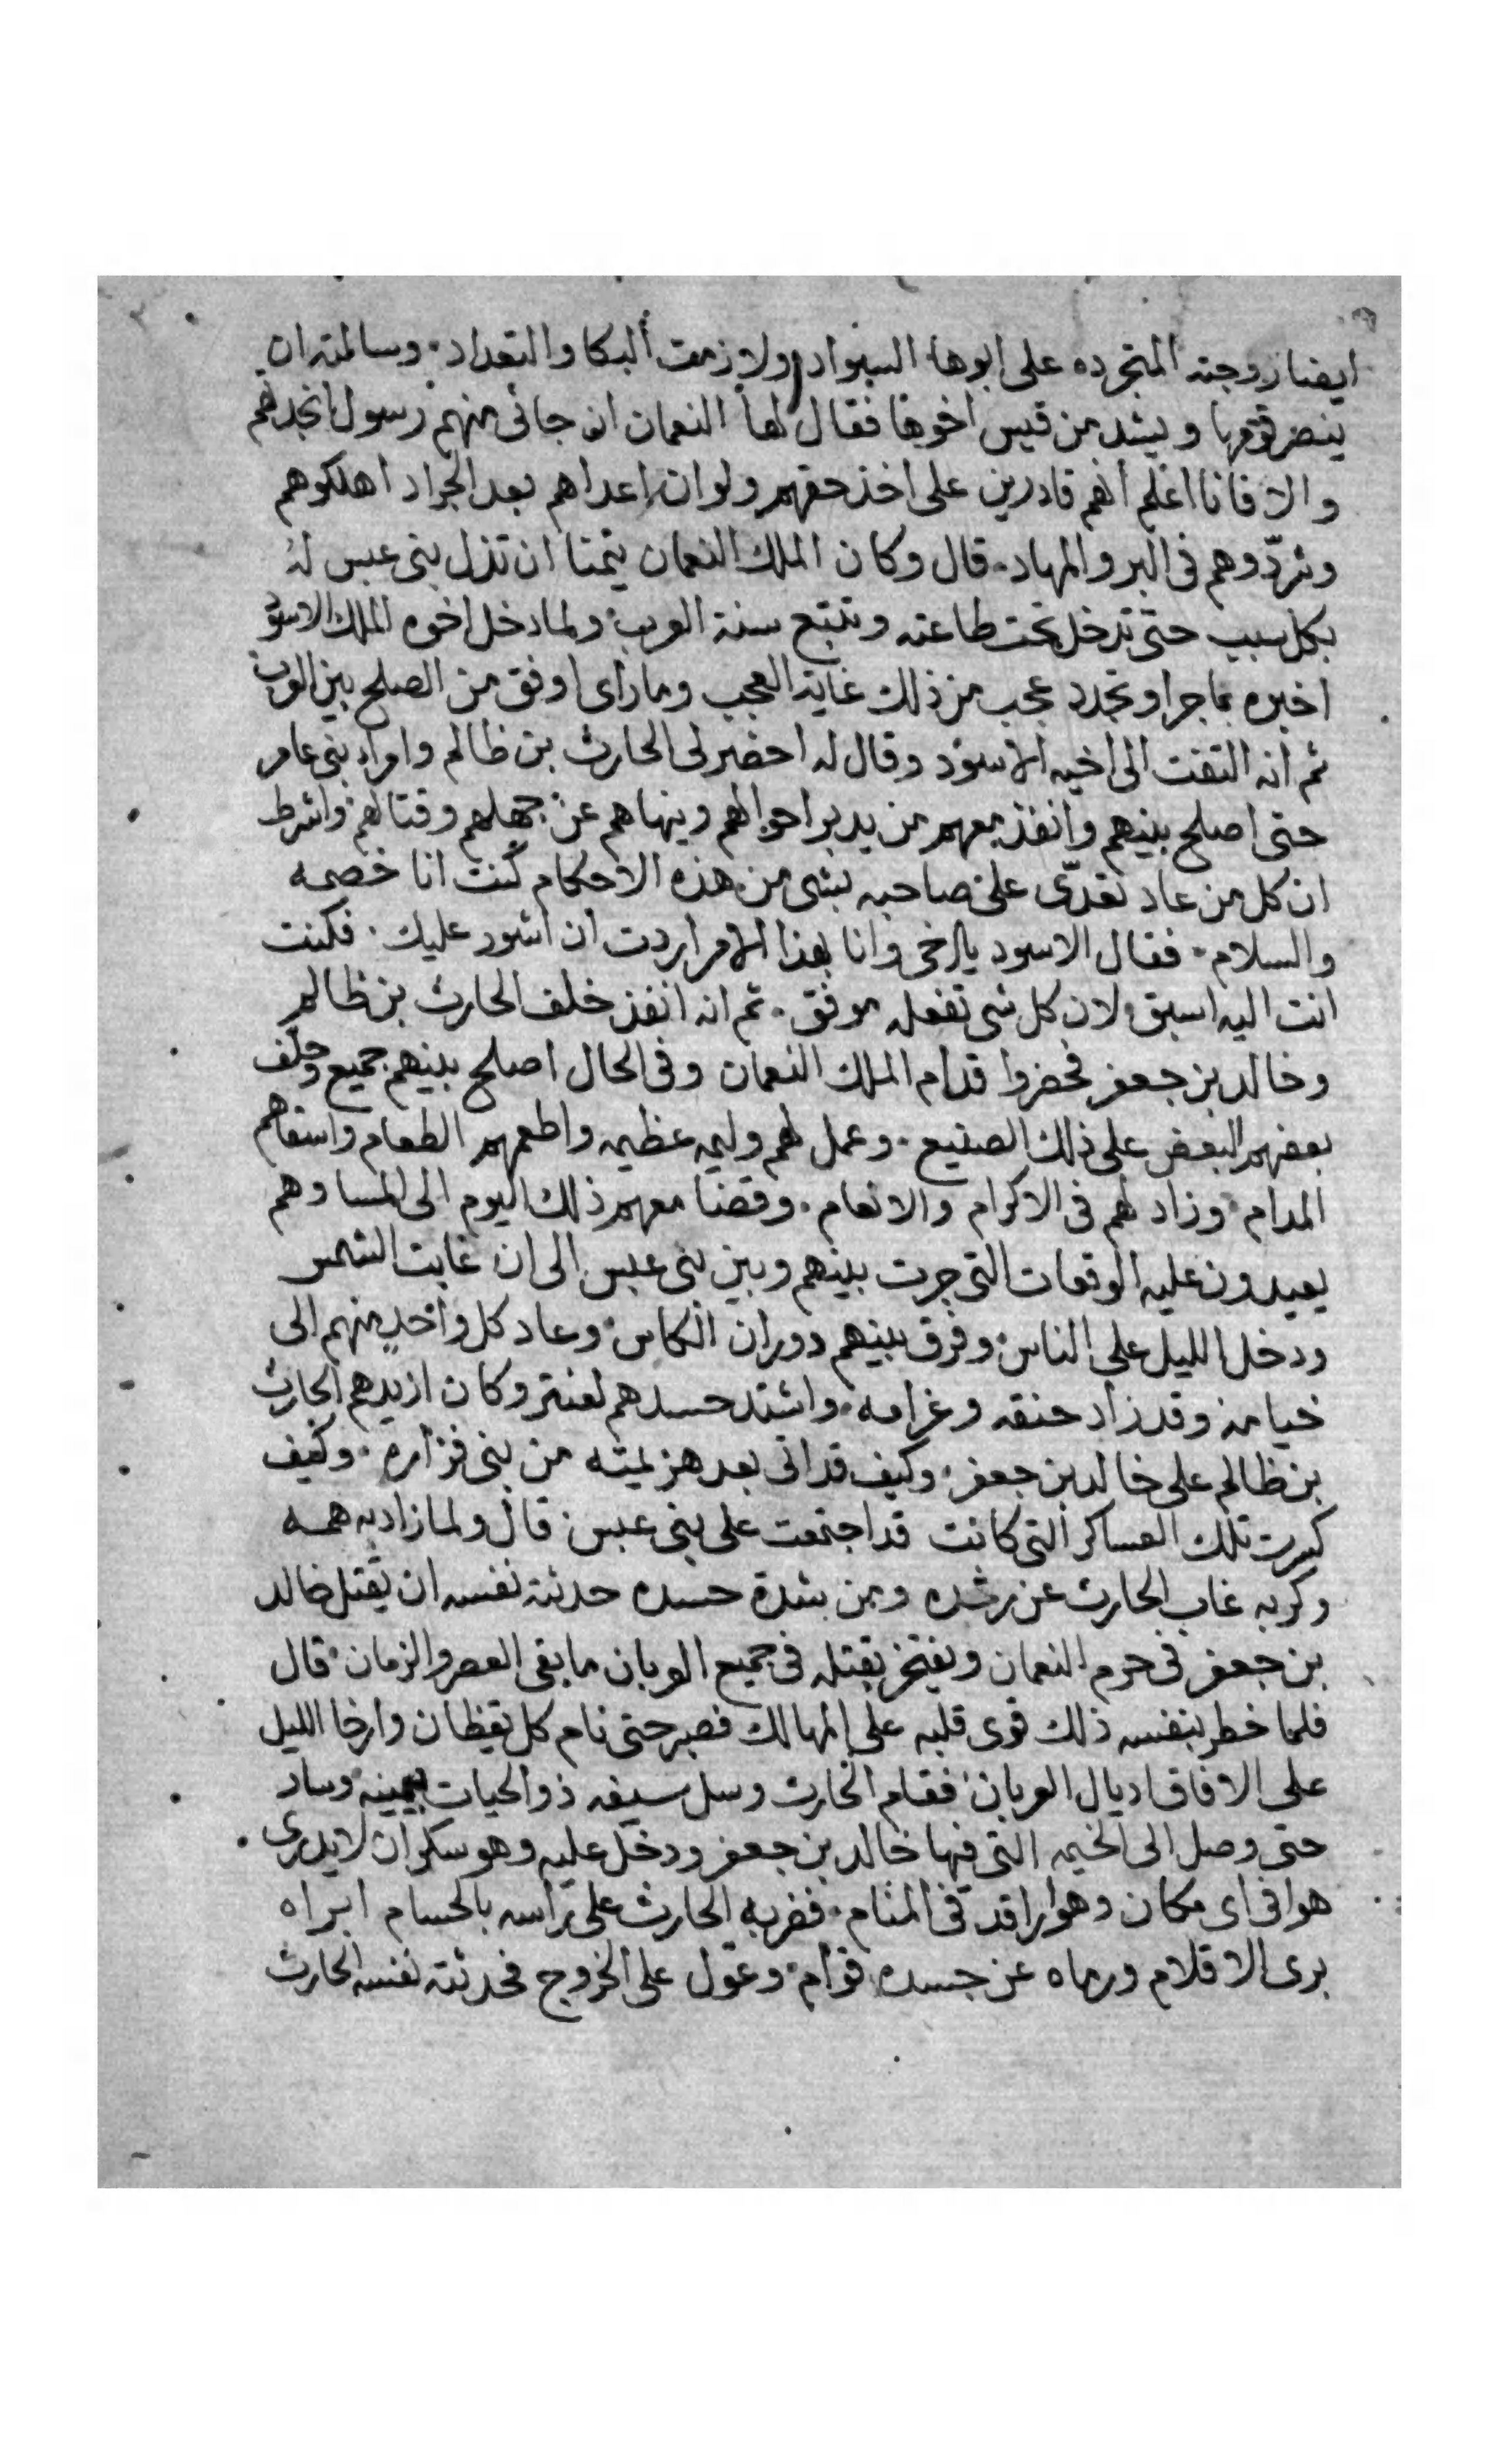 ايضا زوجته المتجرده على ابوها السواد ولازمت البكا والتعداد. وسالته ان
ينصر قومها ويشد من قيس اخوها فقال لها النعمان ان جانى منهم رسول انجدهم
والا فانا اعلم انهم قادرين على اخذ حقهم ولو ان اعداهم بعد الجراد اهلكوهم
وشردّوهم فى البر والمهاد. قال وكان الملك النعمان يتمنا ان تذل بنى عبس له
بكل سبب حتى تدخل تحت طاعته وتتبع سنة العرب ولما دخل اخوه الملك الاسود
اخبره بما جرا وتجدد عجب من ذلك غاية العجب وما راى اوفق من الصلح بين العرب
ثم انه التفت الى اخيه الاسود وقال له احضر لى الحارث بن ظالم وامراء بنى عامر
حتى اصلح بينهم وانفذ معهم من يدبر احوالهم وينهاهم عن جهلهم وقتالهم واشرط
ان كل من عاد تعدّى على صاحبه بشى من هذه الاحكام كنت انا خصمه
والسلام. فقال الاسود يا اخى وانا بهذا الامر اردت ان اشور عليك. فكنت
انت اليه اسبق لان كل شى تفعله موفق. ثم انه انفذ خلف الحارث بن ظالم
وخالد بن جعفر فحضروا قدام الملك النعمان وفى الحال اصلح بينهم جميع وحلّف
بعضهم البعض على ذلك الصنيع. وعمل لهم وليمه عظيمه واطعمهم الطعام واسقاهم
المدام وزاد لهم فى الاكرام والانعام. وقضا معهم ذلك اليوم الى المسا وهم
يعيدون عليه الوقعات التى جرت بينهم وبين بنى عبس الى ان غابت الشمس
ودخل الليل على الناس وفرق بينهم دوران الكاس وعاد كل واحد منهم الى
خيامه وقد زاد حنقه وغرامه. واشتد حسدهم لعنتر وكان ازيدهم الحارث
بن ظالم على خالد بن جعفر وكيف قد اتى بعد هزيمته من بنى فزارة. وكيف
كسرت تلك العساكر التى كانت قد اجتمعت على بنى عبس قال ولما زاد به همه
وكربه غاب الحارث عن رشده ومن شدة حسده حدثته نفسه ان يقتل خالد
بن جعفر فى حرم النعمان ويفتخر بقتله فى جميع العربان ما بقى العصر والزمان قال
فلما خطر بنفسه ذلك قوى قلبه على المهالك فصبر حتى نام كل يقظان وارخا الليل
على الافاق اديال العربان فقام الحارث وسل سيفه ذو الحيات بيمينه وساد
حتى وصل الى الخيمه التى فيها خالد بن جعفر ودخل عليه وهو سكران لا يدرى
هوا فى اى مكان وهوا راقد فى المنام. فضربه الحارث على راسه بالحسام ابراه
برى الاقلام ورماه عن جسده قوام وعوّل على الخروج فحدثته نفسه الحارث